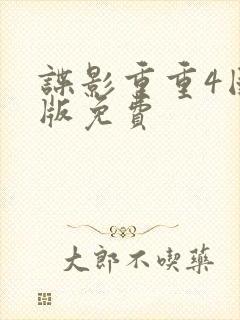 諜影重重4
版免費
大郎不喫藥